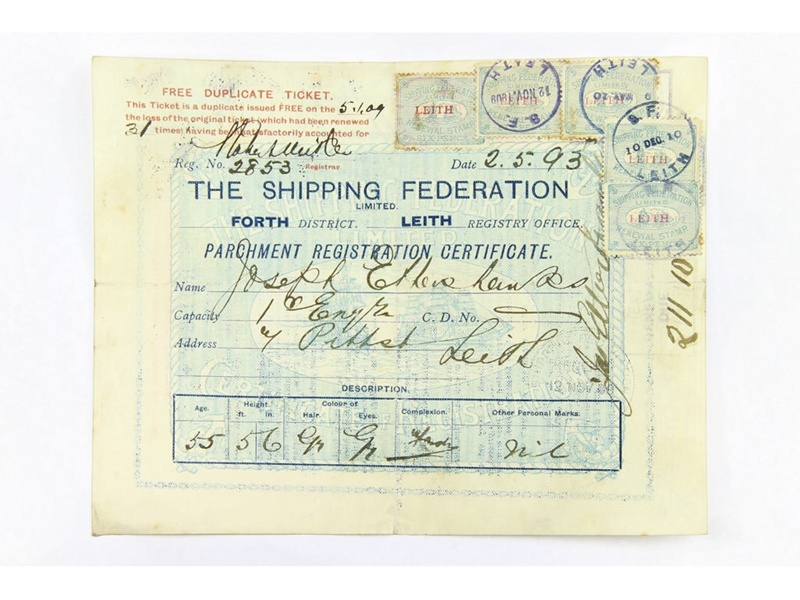 FREE DUPLICATE TICKET.
This Ticket is a duplicate issued FREE on the 5.1.09
the loss of the original ticket (which had been renewed
31 times) having been satisfactorily accounted for
Reg. No. 2853 Registrar. Date 2.5.93
THE SHIPPING FEDERATION
LIMITED.
FORTH DISTRICT. LEITH REGISTRY OFFICE
PARCHMENT REGISTRATION CERTIFICATE.
Name Joseph
Capacity 1 C. D. No.
Address 4 Pitt St Leith
DESCRIPTION.
Age. Height. ft. in. Colour of Hair. Eyes. Complexion. Other Personal Marks.
55 5 6 Gr Gr nil
LEITH
SHIPPING FEDERATION
LEITH
12 NOV. 1909
S. F.
LEITH
LEITH
S. F.
10 DEC. 10
LEITH
LEITH
LEITH
RENEWAL STAMP
2 11 10